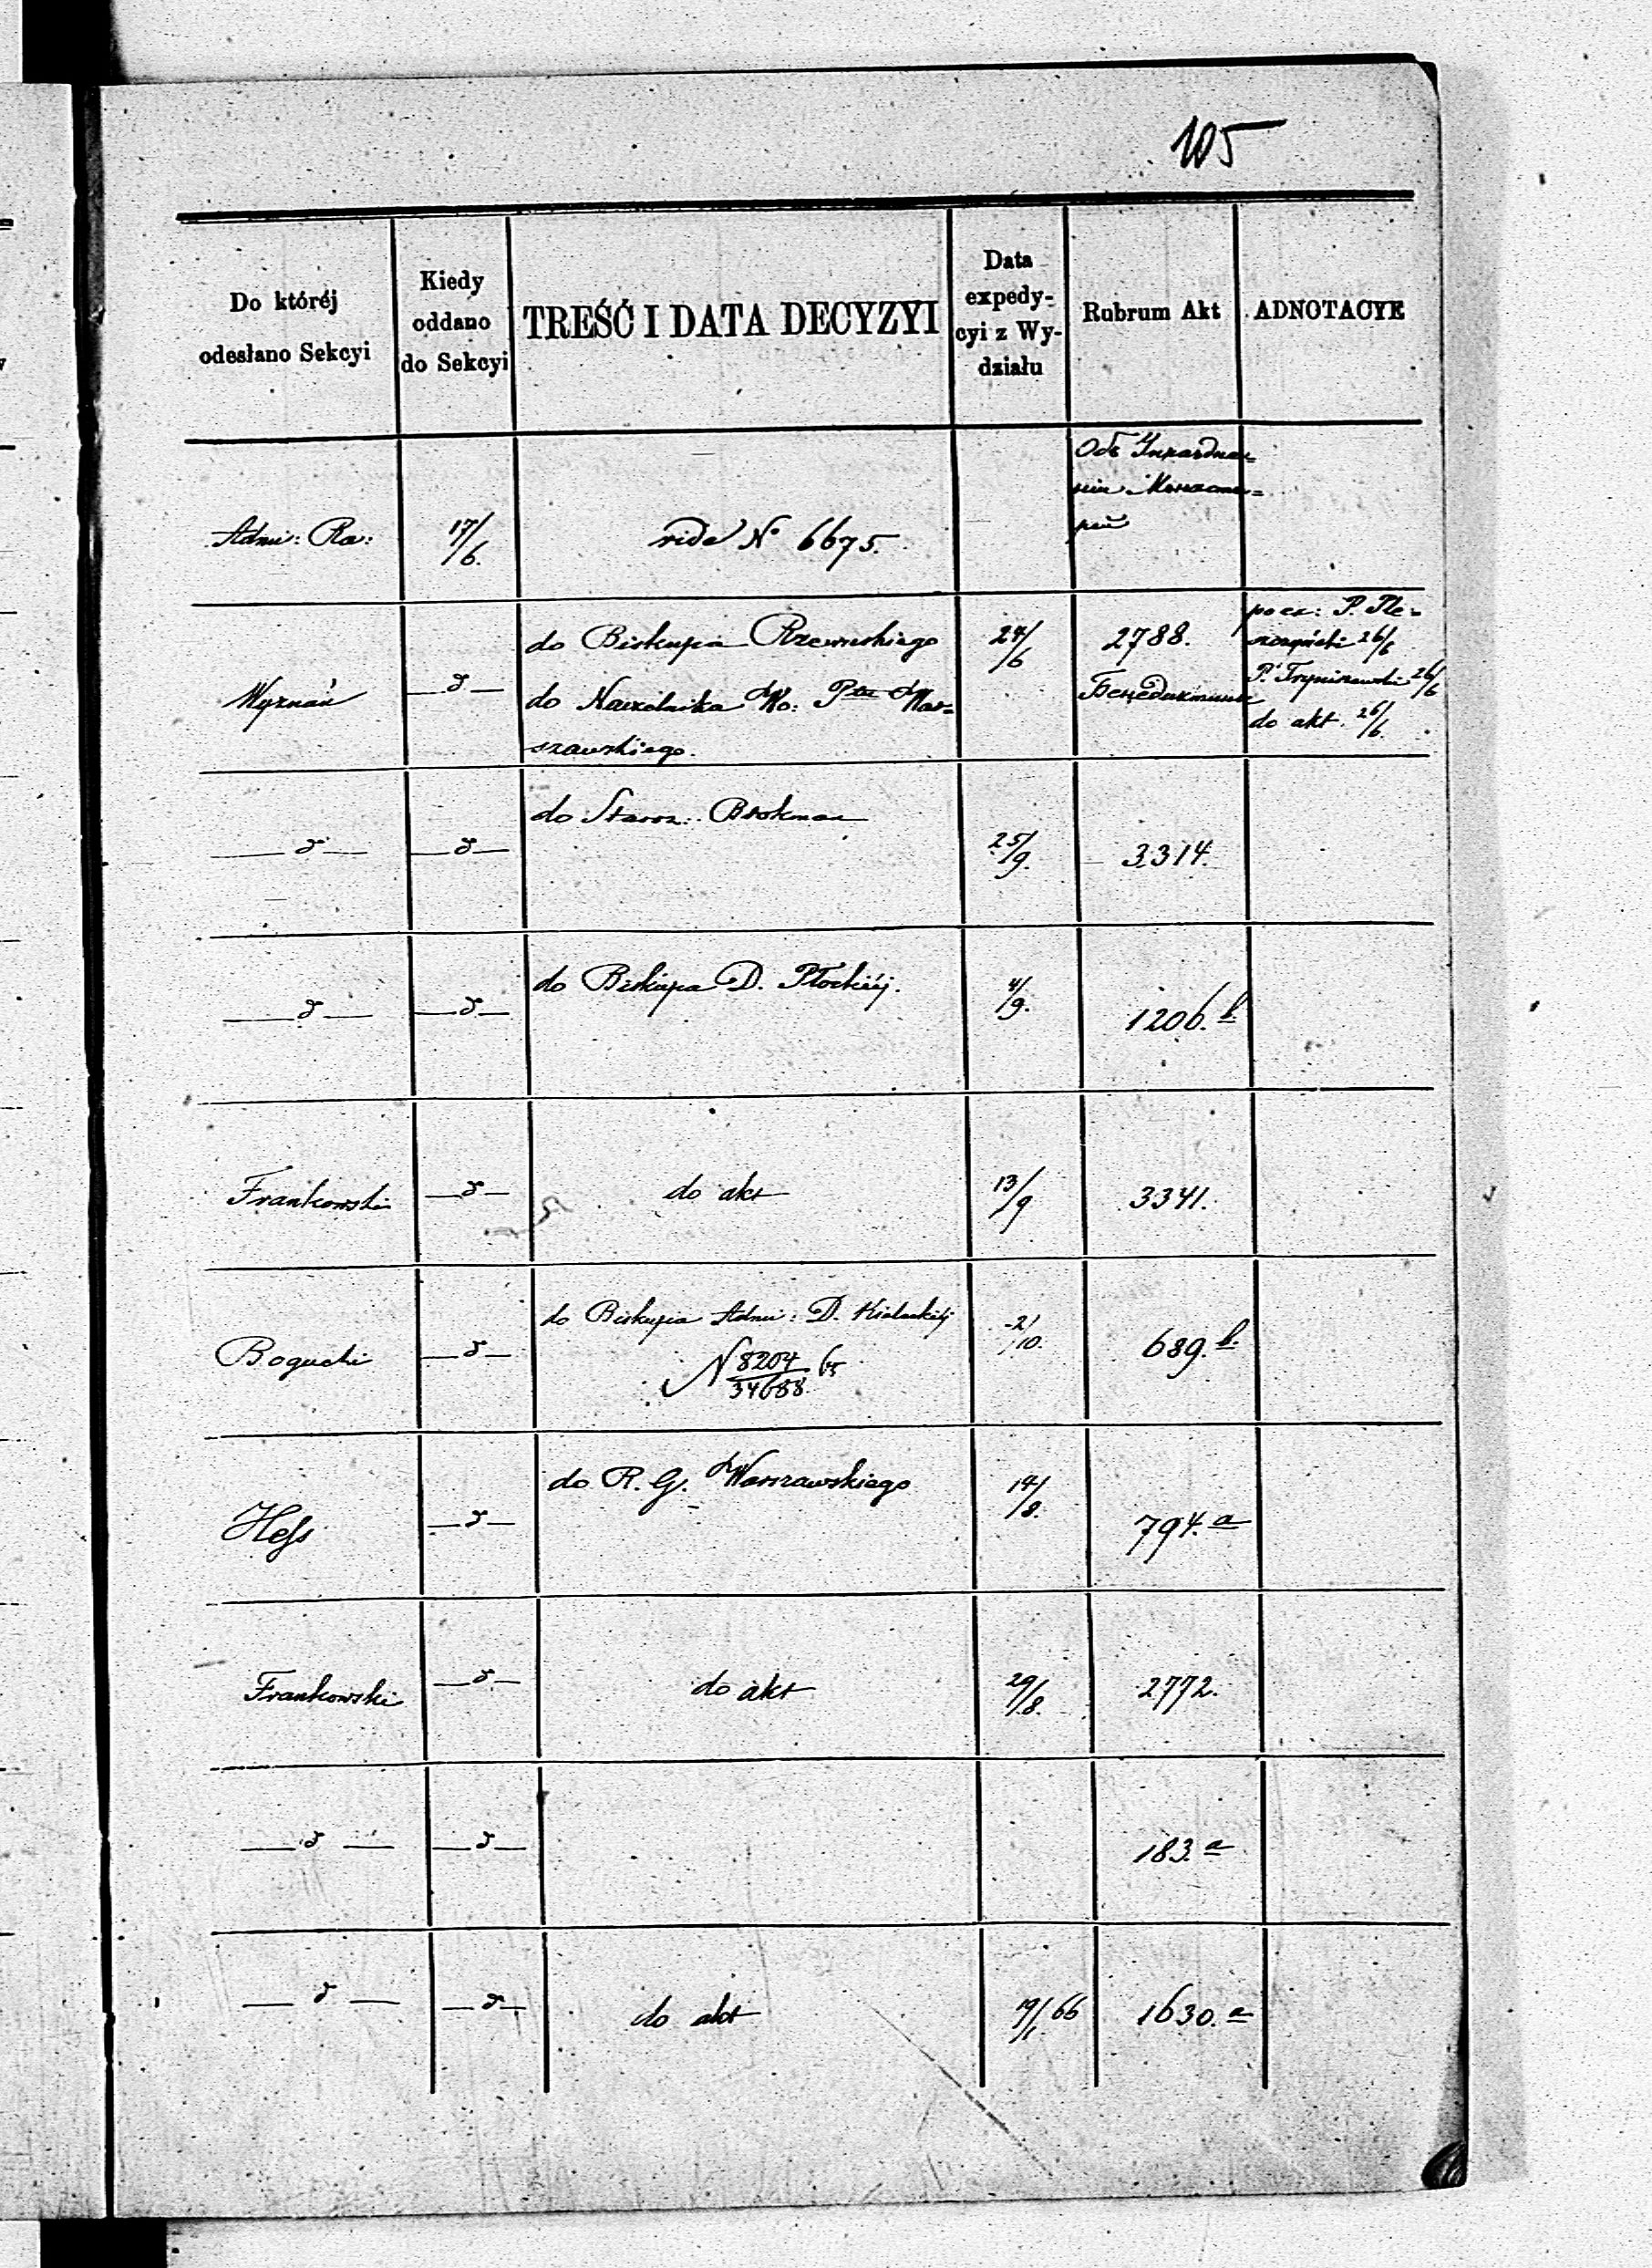 105
Do któréj odesłano Sekcyi
Kiedy oddano do Sekcyi
TREŚĆ I DATA DECYZYI
Data expedycyi z Wydziału
Rubrum Akt
ADNOTACYE
Объ
Admi: Ra: 17/6. vide № 6675.
do Biskupa Rzewuskiego 24/6 2788. pocz: P. Ple=
szczyński 26/6
Wyznań —d— do Naczelnika Wo: Ptu War= Бенедиктины
szawskiego. do akt. 26/6.
do Staroz: Brokman
—d— —d— 25/9. 3314.
do Biskupa D. Płockiéj. 4/9.
—d— —d— 1206.b
Frankowski —d— do akt 13/9 3341.
do Biskupa Admi: D. Kieleckiéj 2/10.
Bogucki —d— N 8204/34688 65 689.b
do R. G. Warszawskiego 14/8.
Hess —d— 794.a
Frankowski —d— do akt 29/8. 2772.
—d— —d— 183.a
—d— —d— do akt 19/1 66 1630.a